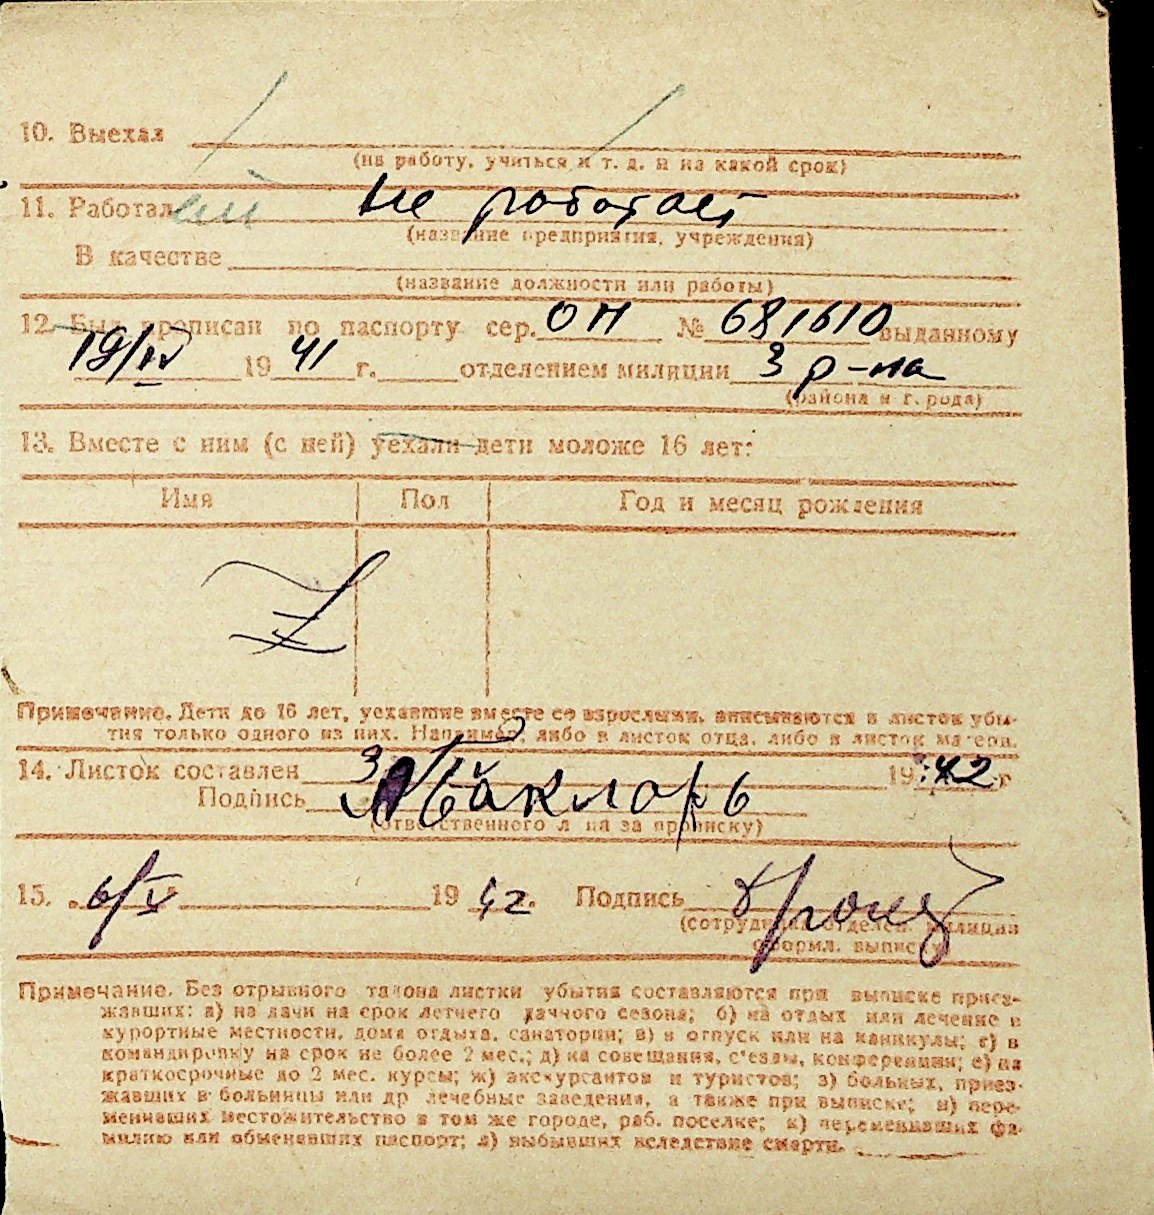 10. Выехал
(на работу, учиться и т. д. и на какой срок)
11. Работал не работает
(название предприятия, учреждения)
В качестве
(название должности или работы)
12. Был прописан по паспорту сер. ОП № 681610 выданному
19/IV 1941 г. отделением милиции 3 р-на
(района и города)
13. Вместе с ним (с ней) уехали дети моложе 16 лет:
Имя Пол Год и месяц рождения
Z
Примечание. Дети до 16 лет, уехавшие вместе со взрослыми, вписываются в листок убы-
тия только одного из них. Например, либо в листок отца, либо в листок матери.
14. Листок составлен 3/IV 1942 г
Подпись
(ответственного лица за прописку)
15. 6/V 1942. Подпись
(сотрудника отделен. милиции
оформл. выписку)
Примечание. Без отрывного талона листки убытия составляются при выписке приез-
жавших: а) на дачи на срок летнего дачного сезона; б) на отдых или лечение в
курортные местности, дома отдыха, санатории; в) в отпуск или на каникулы; г) в
командировку на срок не более 2 мес.; д) на совещания, с'езды, конференции; е) на
краткосрочные до 2 мес. курсы; ж) экскурсантов и туристов; з) больных, приез-
жавших в больницы или др лечебные заведения, а также при выписке; и) пере-
менивших местожительство в том же городе, раб. поселке; к) переменивших фа-
милию или обменявших паспорт; л) выбывших вследствие смерти.